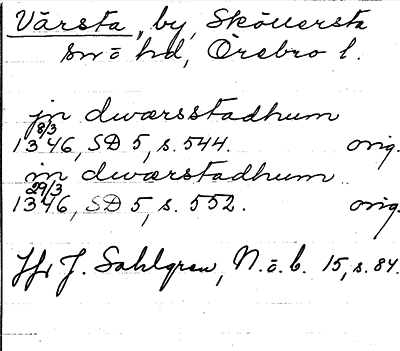 Värsta, by, Sköllersta
sn o hd, Örebro l.
jn dwærsstadhum
8/3
1346, SD 5, s. 544. orig.
in dwærstadhum
29/3
1346, SD 5, s. 552. orig.
Jfr J. Sahlgren, N.o.b. 15, s. 84.